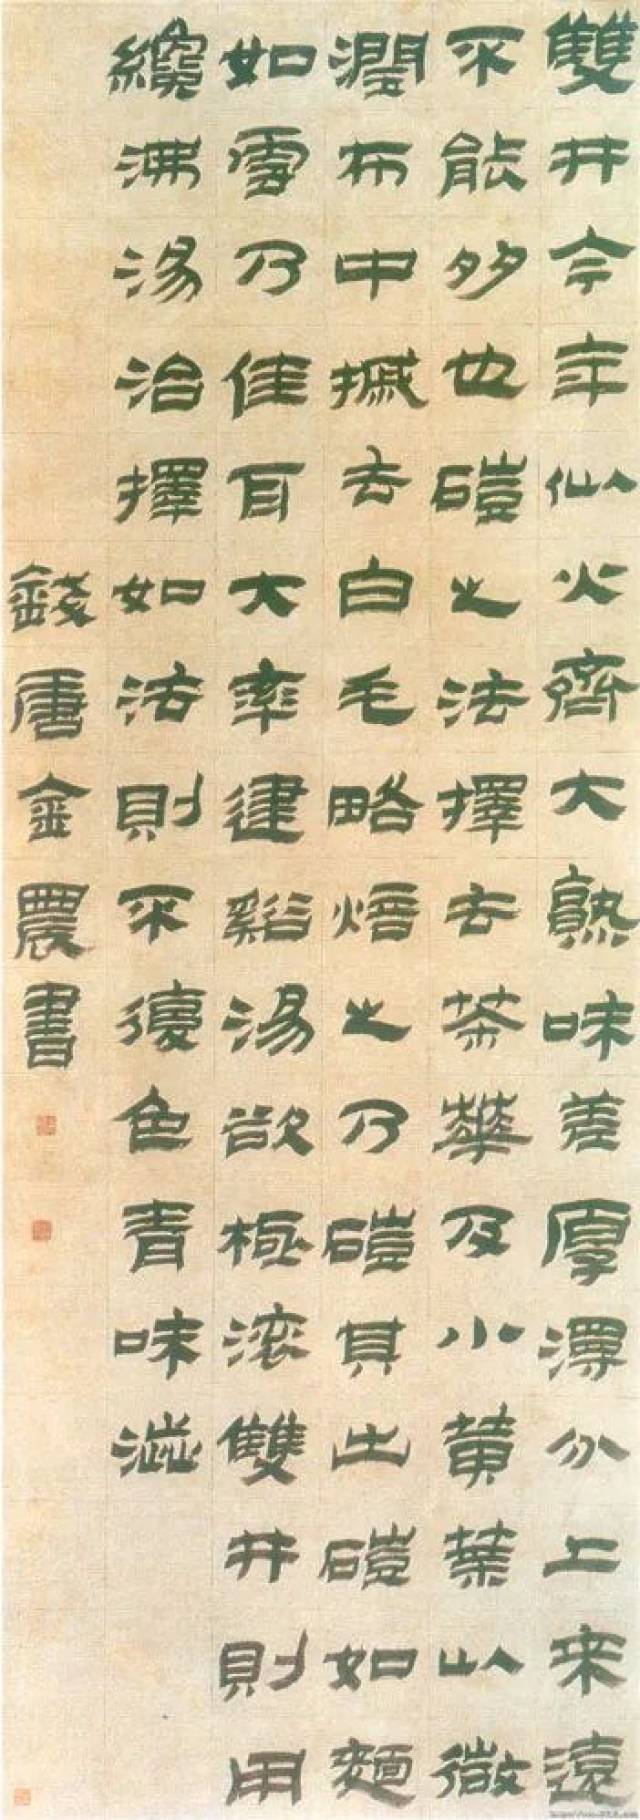 雙井今年似火齊大熟味差厚澤分上来遠
不能多也磑之法擇去茶華及小黄葉以微
潤布中搣去白毛略焙之乃磑其出磑如麵
如雪乃佳耳大率建谿湯欲極滚雙井則用
纔沸湯治擇如法則不復色青味澁
錢唐金農書